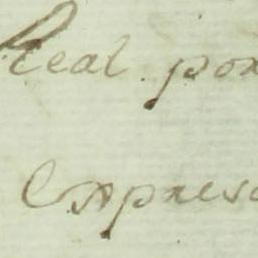 Real por
Expresa